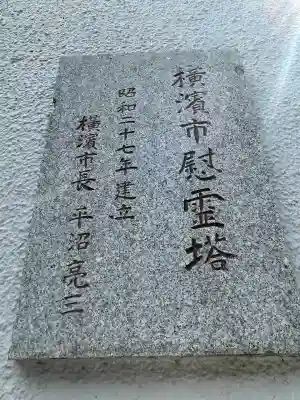 横濱市慰霊塔
昭和二十七年建立
横濱市長 平沼亮三